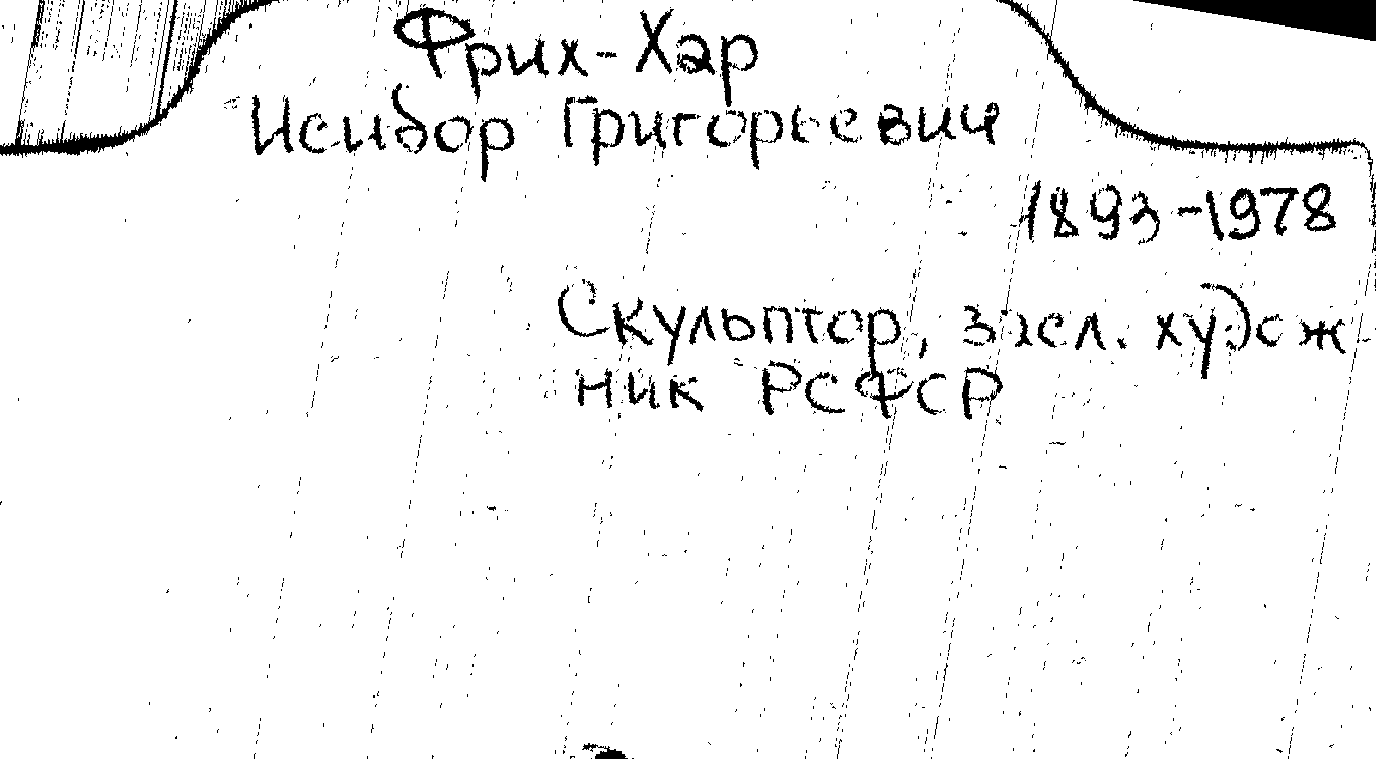 Фрих-Хар
Исидор Григорьевич
1893-1978
Скульптор, засл. худож
ник РСФСР